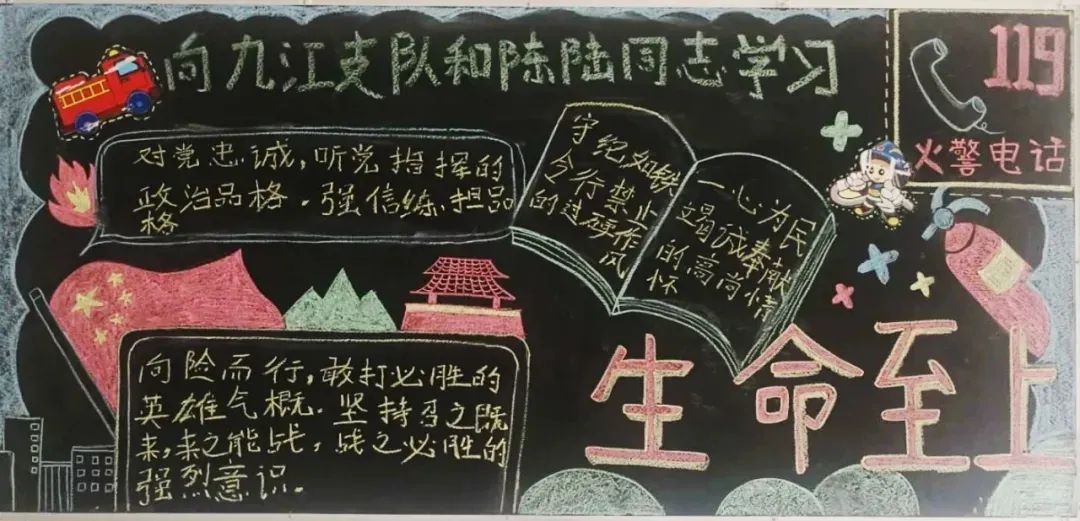 向九江支队和陈陆同志学习
119
火警电话
对党忠诚,听党指挥的
政治品格.强信练担品
格
守纪如铁
令行禁止
的过硬作风
一心为民
竭诚奉献
的高尚情
怀
向险而行,敢打必胜的
英雄气概.坚持召之既
来,来之能战,战之必胜的
强烈意识。
生命至上